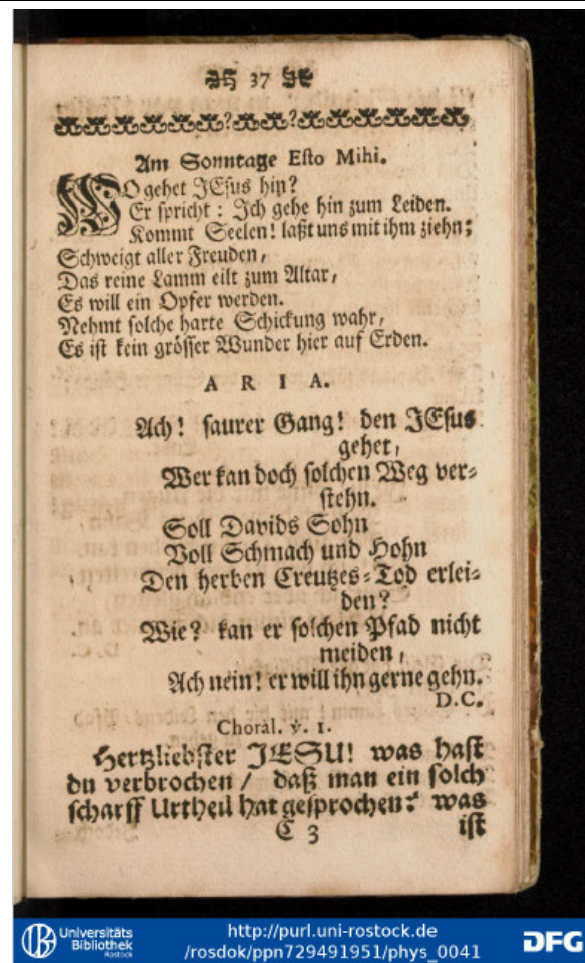 37
Am Sonntage Esto Mihi.
WO gehet JEsus hin?
Er spricht: Ich gehe hin zum Leiden.
Kommt Seelen! laßt uns mit ihm ziehn;
Schweigt aller Freuden,
Das reine Lamm eilt zum Altar,
Es will ein Opfer werden.
Nehmt solche harte Schickung wahr,
Es ist kein grösser Wunder hier auf Erden.
ARIA.
Ach! saurer Gang! den JEsus
gehet,
Wer kan doch solchen Weg ver-
stehn.
Soll Davids Sohn
Voll Schmach und Hohn
Den herben Creutzes-Tod erlei-
den?
Wie? kan er solchen Pfad nicht
meiden,
Ach nein! er will ihn gerne gehn.
D.C.
Choral. v. 1.
Hertzliebster JESU! was hast
du verbrochen / daß man ein solch
scharff Urtheil hat gesprochen? was
C 3 ist
Universitäts
Bibliothek
Rostock
http://purl.uni-rostock.de
/rosdok/ppn729491951/phys_0041
DFG